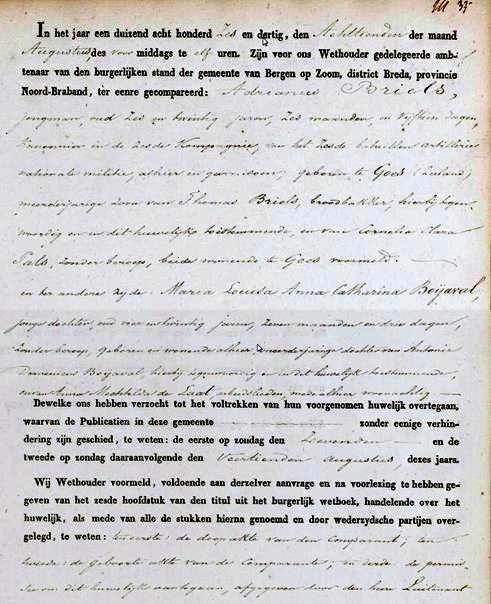 In het jaar een duizend acht honderd Zes en dertig, den Achttienden der maand
Augustus, des voor middags te elf uren. Zijn voor ons Wethouder gedelegeerde amb-
tenaar van den burgerlijken stand der gemeente van Bergen op Zoom, district Breda, provincie
Noord-Braband, ter eenre gecompareerd: Adrianus Briels,
jongman, oud Zes en twintig jaren, Zes maanden, en vijftien dagen,
Kanonnier in de zesde Kompagnie, van het Zesde bataillon artillerie
nationale militie, alhier in garnisoen, geboren te Goes (Zeeland)
meerderjarige zoon van Thomas Briels, broodbakker, hierbij tegen-
woordig en in dit huwelijk toestemmende, en van Cornelia Clara
Pals, zonder beroep, beide wonende te Goes voormeld.
en ter andere zijde: Maria Louisa Anna Catharina Beijaval,
jonge dochter, oud vier en twintig jaren, Zeven maanden en drie dagen,
zonder beroep, geboren en wonende alhier, meerderjarige dochter van Antonie
Domenicus Beijaval, hierbij tegenwoordig en in dit huwelijk toestemmende,
en van Anna Mechtilda de Laat, arbeidslieden, mede alhier woonachtig
Dewelke ons hebben verzocht tot het voltrekken van hun voorgenomen huwelijk overtegaan,
waarvan de Publicatien in deze gemeente zonder eenige verhin-
dering zijn geschied, te weten: de eerste op zondag den Zevenden en de
tweede op zondag daaraanvolgende den Veertienden augustus, dezes jaars.
Wij Wethouder voormeld, voldoende aan derzelver aanvrage en na voorlezing te hebben ge-
geven van het zesde hoofdstuk van den titul uit het burgerlijk wetboek, handelende over het
huwelijk, als mede van alle de stukken hierna genoemd en door wederzydsche partijen over-
gelegd, te weten: ten eerste: de doopakte van den Comparant; ten
tweede: de Geboorte akte van de Comparante; en derde de permis-
sie om dit huwelijk aantegaan, afgegeven door den heer Luitenant